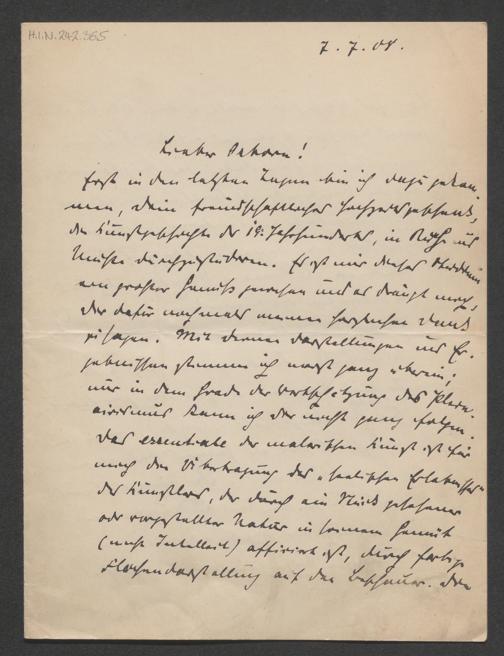 H.I.N. 242.365
7. 7. 08.
Lieber Pekarn!
Erst in den letzten Tagen bin ich dazu gekom-
men, Dein freundschaftliches Hochzeitsgeschenk,
die Kunstgeschichte des 19. Jahrhunderts, in Ruhe und
Muße durchzustudieren. Es ist mir dieses Studium
ein großer Genuß gewesen und es drängt mich,
Dir dafür nochmals meinen herzlichen Dank
zu sagen. Mit Deinen Darstellungen und Er-
gebnissen stimme ich meist ganz überein;
nur in dem Grade der Wertschätzung des Plein-
airismus kann ich Dir nicht ganz folgen.
Das essentiale der malerischen Kunst ist für
mich die Übertragung des „seelischen Erlebnisses"
des Künstlers, der durch ein Stück gesehener
oder vorgestellter Natur in seinem Gemüt
(nicht Intellect) affiziert ist, durch farbige
Flächendarstellung auf den Beschauer. Den